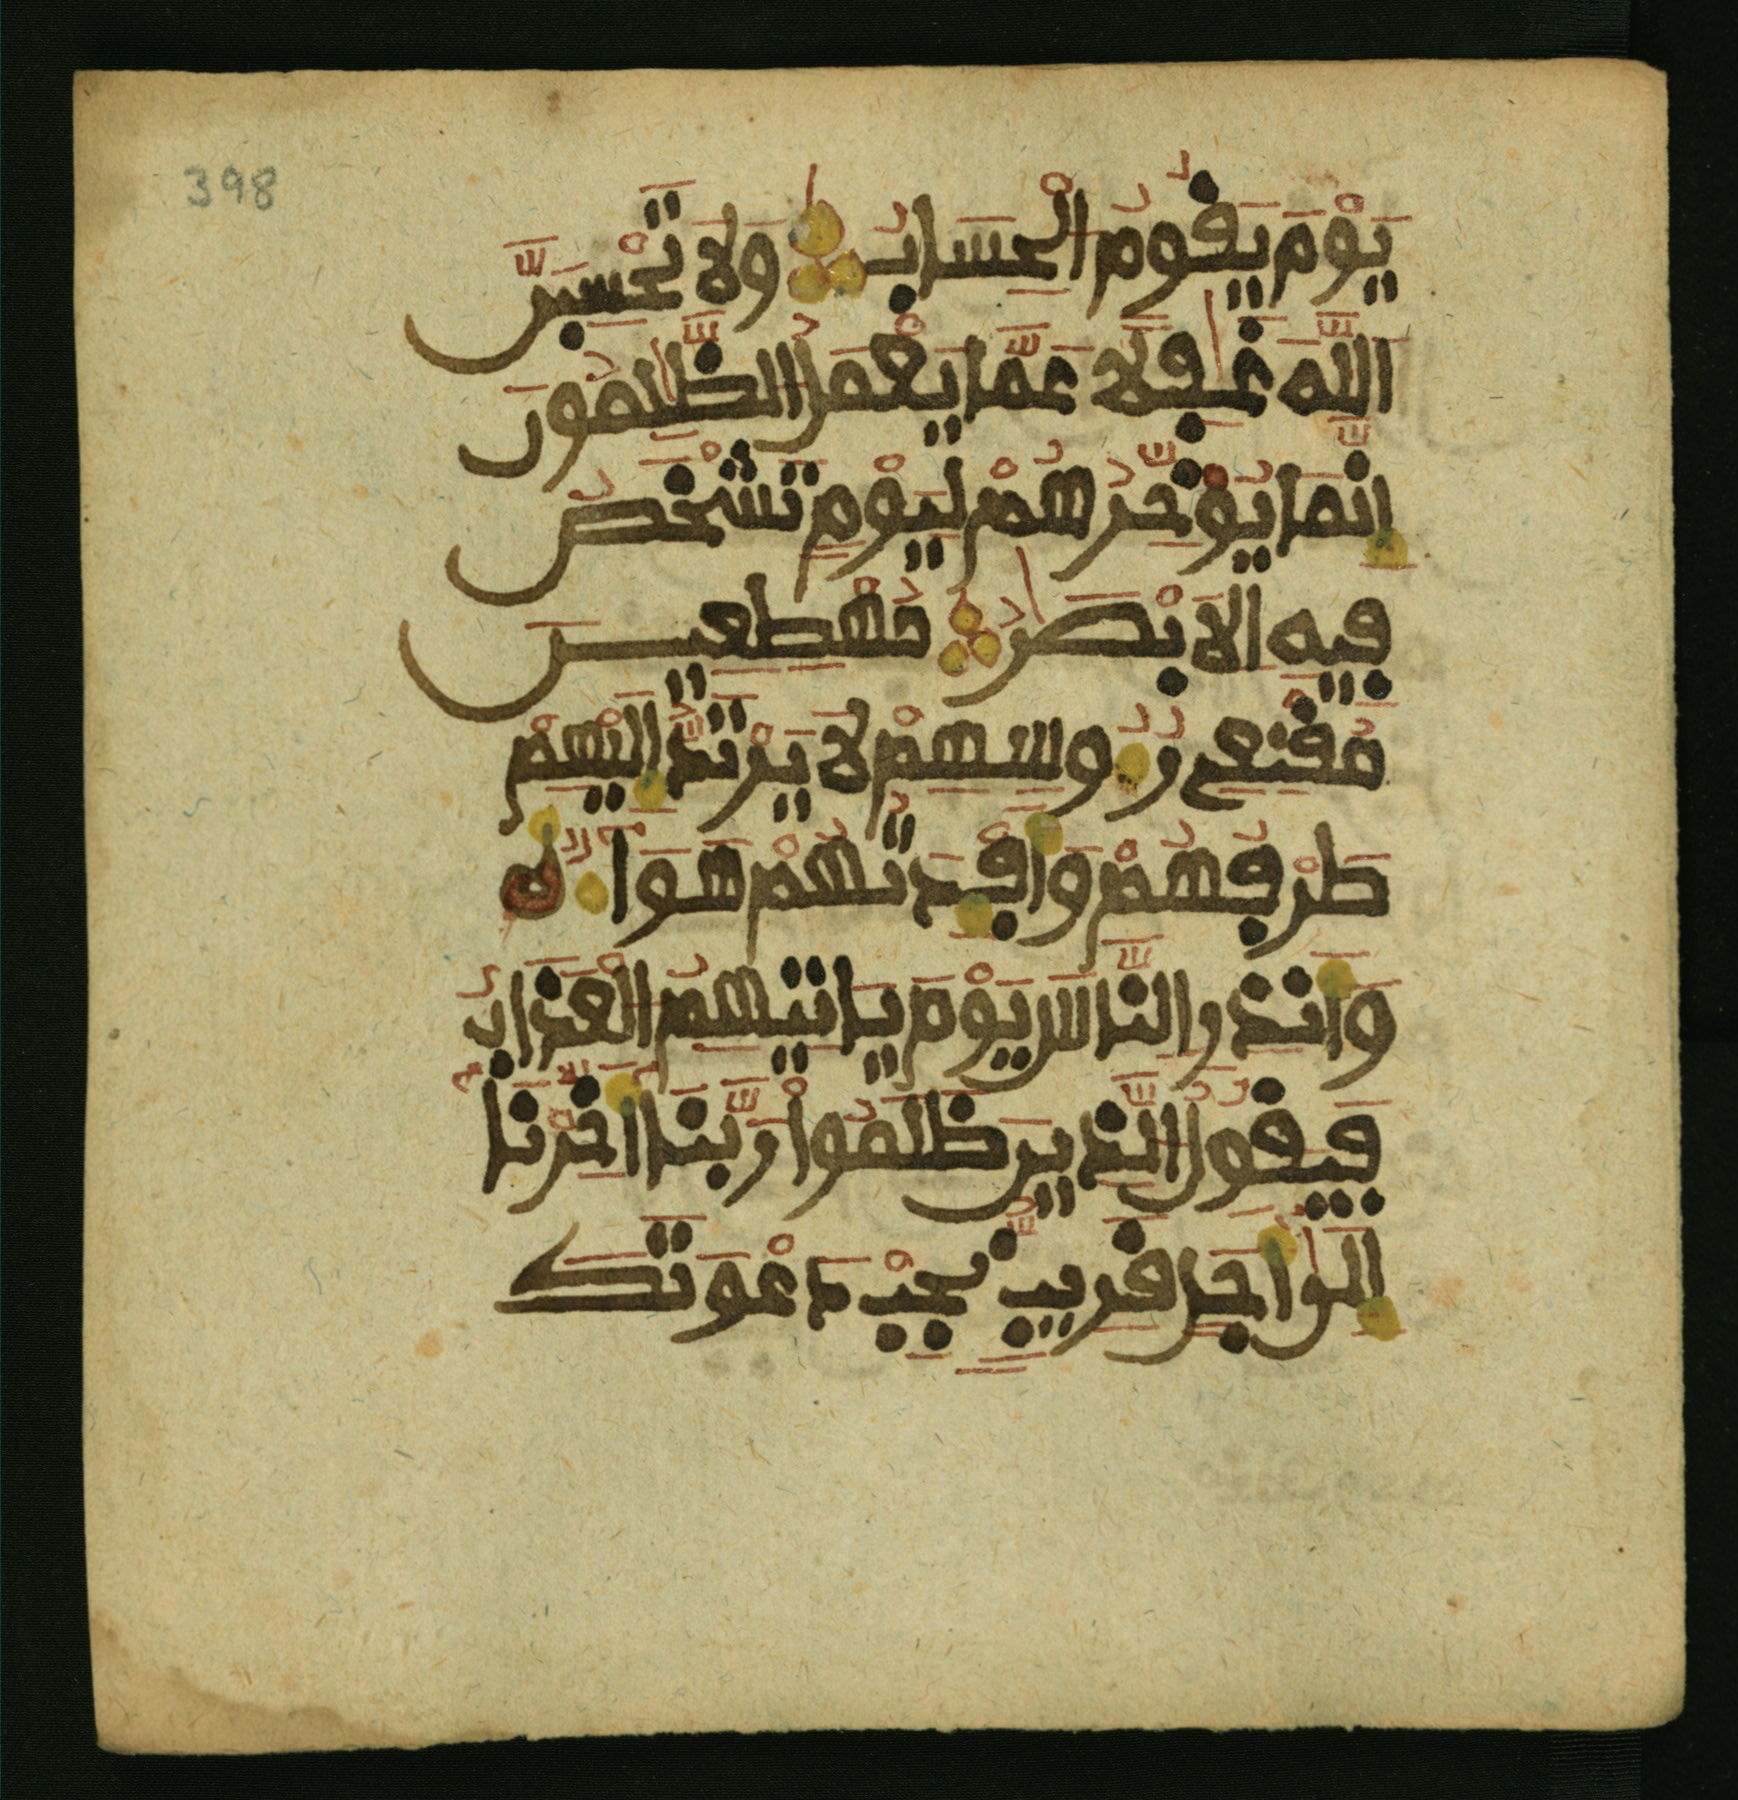 398
يَوْمَ يَقُومُ الْحِسَابُ وَلَا تَحْسِبَنَّ
اللَّهَ غَٰفِلًا عَمَّا يَعْمَلُ الظَّٰلِمُونَ
إِنَّمَا يُؤَخِّرُهُمْ لِيَوْمٍ تَشْخَصُ
فِيهِ الْأَبْصَٰرُ مُهْطِعِينَ
مُقْنِعِي رُءُوسِهِمْ لَا يَرْتَدُّ إِلَيْهِمْ
طَرْفُهُمْ وَأَفْـِٔدَتُهُمْ هَوَآءٌ
وَأَنذِرِ النَّاسَ يَوْمَ يَأْتِيهِمُ الْعَذَابُ
فَيَقُولُ الَّذِينَ ظَلَمُوا رَبَّنَا أَخِّرْنَا
إِلَىٰ أَجَلٍ قَرِيبٍ نُّجِبْ دَعْوَتَكَ